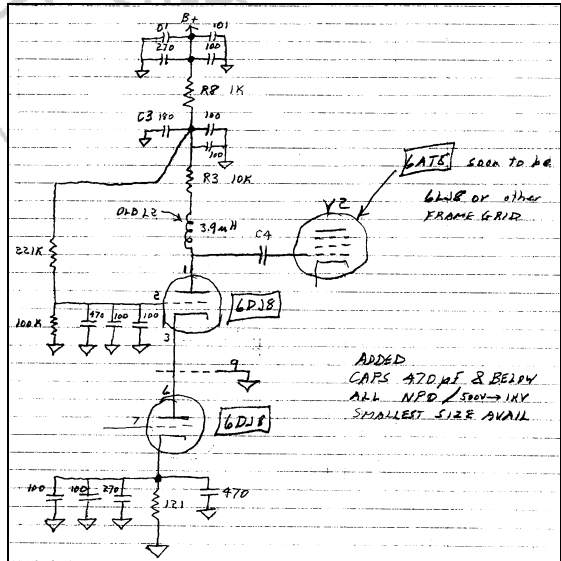 B+
.01
.01
270
100
R8 1K
C3 180
100
100
R3 10K
OLD L2
3.9mH
C4
V2
6AT8 soon to be
6LJ8 or other
FRAME GRID
221K
1
2
3
6DJ8
100K
470
100
100
9
6
7
6DJ8
ADDED
CAPS 470 pF & BELOW
ALL NPO / 500V → 1KV
SMALLEST SIZE AVAIL
100
100
270
121
470